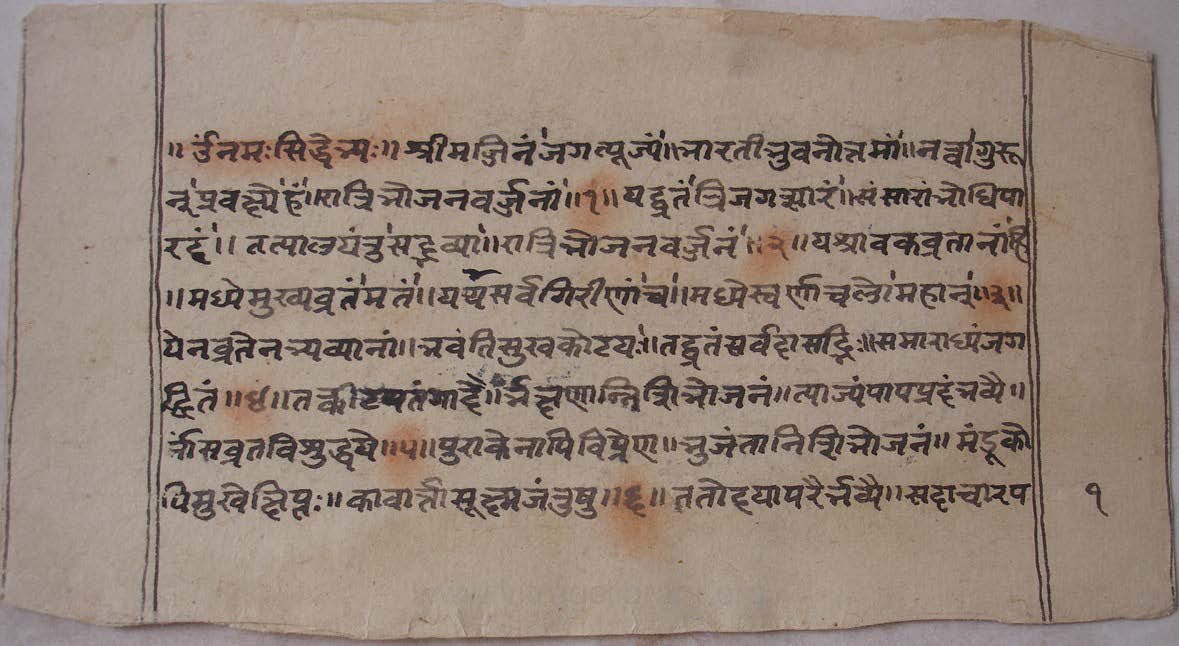 ॥ उंनमःसिद्धेभ्यः॥ श्रीमज्जिनंजगत्पूज्यं॥भारतीभुवनोत्तमां॥नत्वागुरू
न्प्रवक्ष्येहं॥रात्रिभोजनवर्ज्जनां॥१॥ यद्व्रतंत्रिजगत्सारं॥संसारांभोधिपा
रदं॥ तत्पालयंतुसद्भव्या॥रात्रिभोजनवर्ज्जनं॥२॥ यश्रावकव्रतानांहि
॥मध्येमुख्यव्रतंमतं॥यथासर्वगिरीणांचा॥मध्येस्वर्णाचलोमहान्॥३॥
येनव्रतेनभव्यानां॥भवंतिसुखकोटयः॥तद्व्रतंसर्वदासद्भिः॥समाराध्यंजग
द्धितं॥४॥तत्कीटपतंगादै॥र्भक्षणान्निशिभोजनं॥त्याज्यंपापप्रदंभव्यै॥
र्मांसव्रतविशुद्धये॥५॥पुराकेनापिविप्रेण॥भुजंतानिशिभोजनं॥मंडूको
पिमुखेक्षिप्तः॥कावार्त्तासूक्ष्मजंतुषु॥६॥ततोदयापरैर्भव्यै॥सदाचारप
१